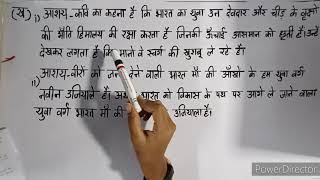 (ख) i) आशय - कवि का कहना है कि भारत का युवा उन देवदार और चीड़ के वृक्षों
की भाँति हिमालय की रक्षा करता है जिनकी ऊँचाई आसमान को छूती है। उन्हें
देखकर लगता है कि मानो वे स्वर्ग की खुशबू ले रहे हैं।
ii) आशय - वीरों को जन्म देने वाली भारत माँ की आँखों के हम युवा वर्ग
नवीन उजियाले हैं। भारत को विकास के पथ पर आगे ले जाने वाला
युवा वर्ग भारत माँ की उजियाला है।
PowerDirector